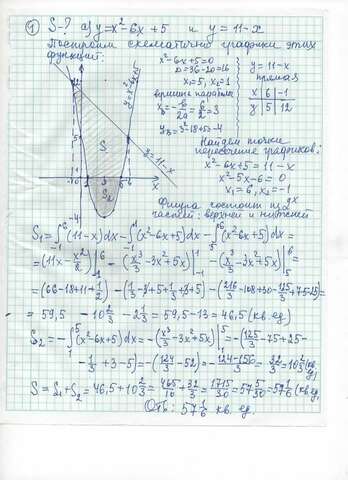 ① S-? а) y=x²-6x+5 и y=11-x
Построим схематично графики этих
функций:
x²-6x+5=0
D=36-20=16
x₁=5, x₂=1
вершина параболы
x_в=-b/2a=6/2=3
y_в=3²-18+5=-4
y=11-x
прямая
x | 6 | -1
y | 5 | 12
Найдем точки
пересечения графиков:
x²-6x+5=11-x
x²-5x-6=0
x₁=6, x₂=-1
Фигура состоит из 2ух
частей: верхней и нижней
y=x²-6x+5
y=11-x
S
S₂
x
S₁=∫₋₁⁶(11-x)dx-∫₋₁¹(x²-6x+5)dx-∫₅⁶(x²-6x+5)dx=
=(11x-x²/2)|₋₁⁶-(x³/3-3x²+5x)|₋₁¹-(x³/3-3x²+5x)|₅⁶=
=(66-18+11+1/2)-(1/3-3+5+1/3+3+5)-(216/3-108+30-125/3+75-25)=
=59,5-10 2/3-2 1/3=59,5-13=46,5(кв.ед)
S₂=-∫₁⁵(x²-6x+5)dx=-(x³/3-3x²+5x)|₁⁵=-(125/3-75+25-
-1/3+3-5)=-(124/3-52)=-124-156/3=32/3=10 2/3(кв.ед)
S=S₁+S₂=46,5+10 2/3=465/10+32/3=1715/30=57 5/30=57 1/6(кв.ед)
Отв: 57 1/6 кв. ед.